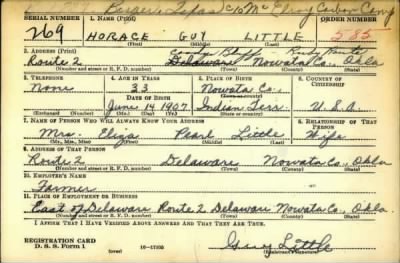 Borger, Texas c/o McElroy Carbon Camp
SERIAL NUMBER 1. NAME (Print) ORDER NUMBER
269 HORACE GUY LITTLE 585
(First) (Middle) (Last)
2. ADDRESS (Print)
Route 2 Delaware Nowata Co. Okla
(Number and street or R. F. D. number) (Town) (County) (State)
3. TELEPHONE 4. AGE IN YEARS 5. PLACE OF BIRTH 6. COUNTRY OF CITIZENSHIP
None 33 Nowata Co.
DATE OF BIRTH
June 14 1907 Indian Terr. U.S.A.
(Exchange) (Number) (Mo.) (Day) (Yr.) (State or country)
7. NAME OF PERSON WHO WILL ALWAYS KNOW YOUR ADDRESS 8. RELATIONSHIP OF THAT PERSON
Mrs. Eliza Pearl Little Wife
(Mr., Mrs., Miss) (First) (Middle) (Last)
9. ADDRESS OF THAT PERSON
Route 2 Delaware Nowata Co. Okla
(Number and street or R. F. D. number) (Town) (County) (State)
10. EMPLOYER'S NAME
Farmer
11. PLACE OF EMPLOYMENT OR BUSINESS
East of Delaware Route 2 Delaware Nowata Co. Okla.
(Number and street or R. F. D. number) (Town) (County) (State)
I AFFIRM THAT I HAVE VERIFIED ABOVE ANSWERS AND THAT THEY ARE TRUE.
REGISTRATION CARD
D. S. S. Form 1 (over) 16-17105 Guy Little
(Registrant's signature)